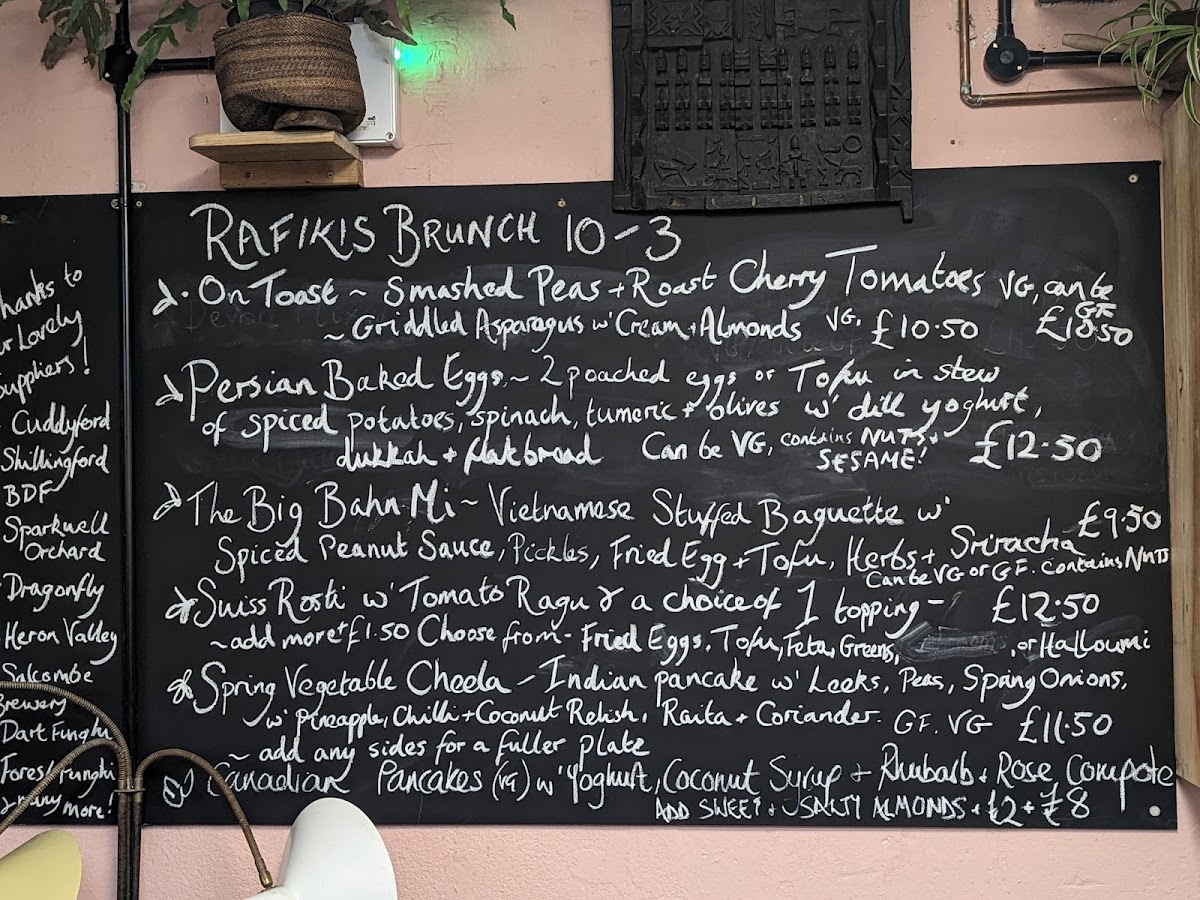 Thanks to
our Lovely
Suppliers!
Cuddyford
Shillingford
BDF
Sparkwell
Orchard
Dragonfly
Heron Valley
Salcombe
Brewery
Dart Funghi
Forest Funghi
& many more!
RAFIKIS BRUNCH 10-3
On Toast ~ Smashed Peas + Roast Cherry Tomatoes VG, can be GF
£10.50
~ Griddled Asparagus w' Cream + Almonds VG. £10.50
Persian Baked Eggs ~ 2 poached eggs or Tofu in stew
of spiced potatoes, spinach, tumeric + olives w' dill yoghurt,
dukkah + flatbread Can be VG, contains NUTS + SESAME! £12.50
The Big Bahn Mi ~ Vietnamese Stuffed Baguette w' £9.50
Spiced Peanut Sauce, Pickles, Fried Egg + Tofu, Herbs + Sriracha
Can be VG or GF. contains NUTS
Suiss Rosti w' Tomato Ragu & a choice of 1 topping - £12.50
~ add more + £1.50 Choose from - Fried Eggs, Tofu, Feta, Greens, , or Halloumi
Spring Vegetable Cheela - Indian pancake w' Leeks, Peas, Spring Onions,
w' pineapple, Chilli + Coconut Relish, Raita + Coriander. GF. VG £11.50
~ add any sides for a fuller plate
Canadian Pancakes (VG) w' Yoghurt, Coconut Syrup + Rhubarb + Rose Compote
ADD SWEET + SALTY ALMONDS + £2 + £8